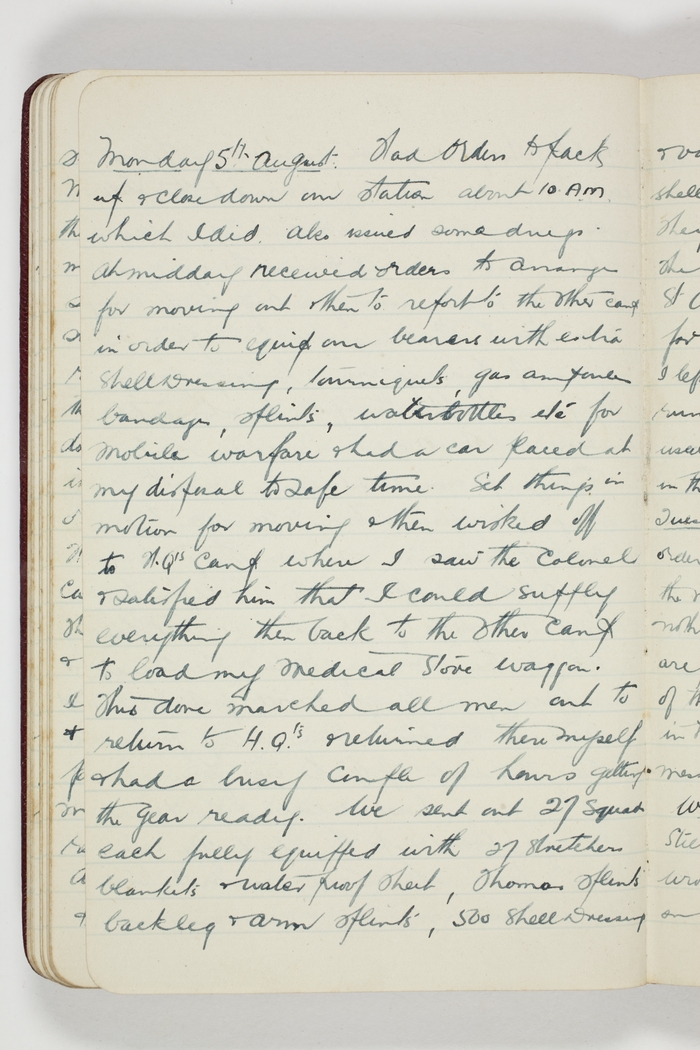 Monday 5th August. Had orders to pack
up & close down our station about 10 A.M.
which I did. Also issued some drugs.
At midday received orders to arrange
for moving out & then to report to the other camp
in order to equip our bearers with extra
Shell Dressing, tourniquets, gas
bandages, splints, waterbottles etc for
Mobile warfare & had a car placed at
my disposal to safe time. Set things in
motion for moving & then worked off
to H.Qrs Camp where I saw the Colonel
& satisfied him that I could supply
everything then back to the other Camp
to load my Medical Store waggon.
This done marched all men out to
return to H.Q.rs & returned there myself
& had a busy couple of hours getting
the gear ready. We sent out 27 Squads
each fully equipped with 27 Stretchers
blankets & water proof sheet, Thomas splints
back leg & arm splints, 500 Shell Dressing